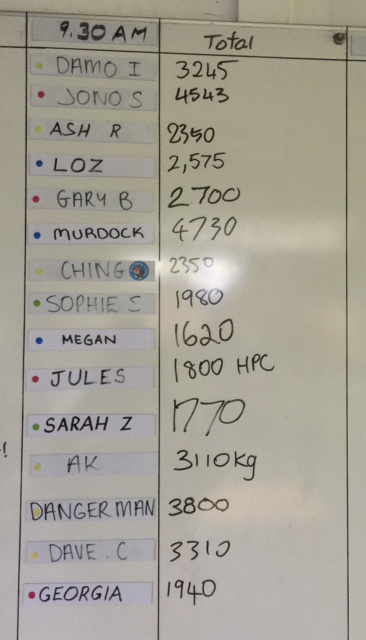 9.30 AM Total
DAMO I 3245
JONO S 4543
ASH R 2350
LOZ 2,575
GARY B 2700
MURDOCK 4730
CHING 2350
SOPHIE S 1980
MEGAN 1620
JULES 1800 HPC
SARAH Z 1770
AK 3110kg
DANGER MAN 3800
DAVE . C 3310
GEORGIA 1940